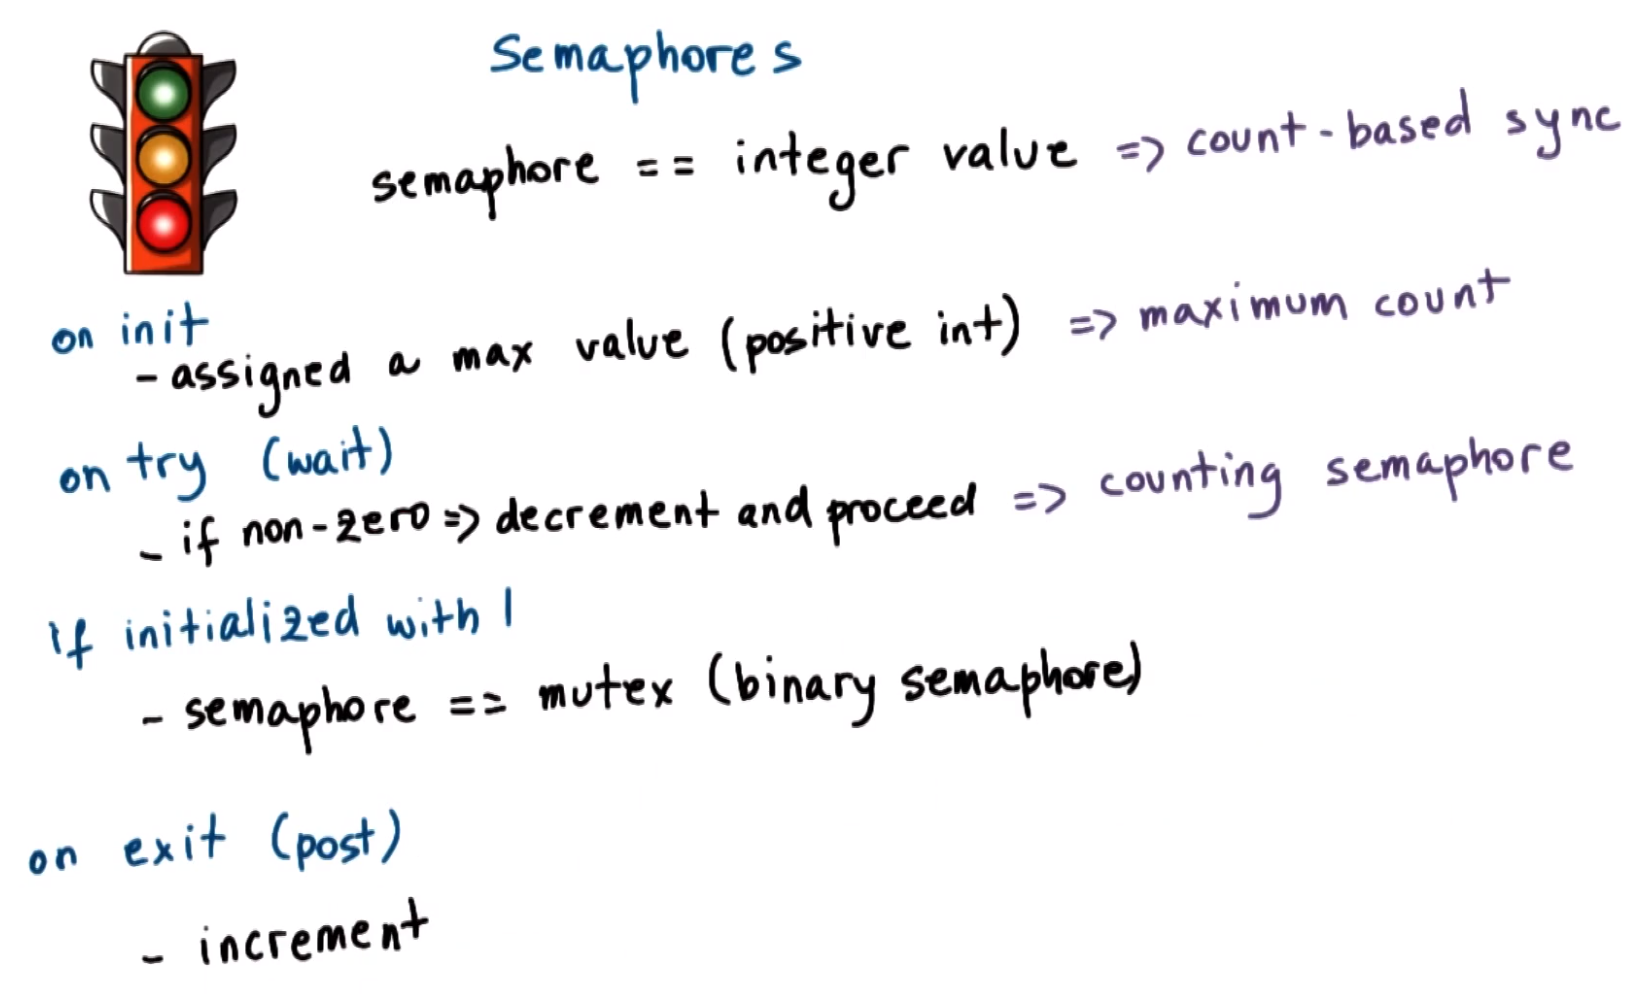 Semaphores
semaphore == integer value => count-based sync
on init
- assigned a max value (positive int) => maximum count
on try (wait)
- if non-zero => decrement and proceed => counting semaphore
if initialized with 1
- semaphore == mutex (binary semaphore)
on exit (post)
- increment